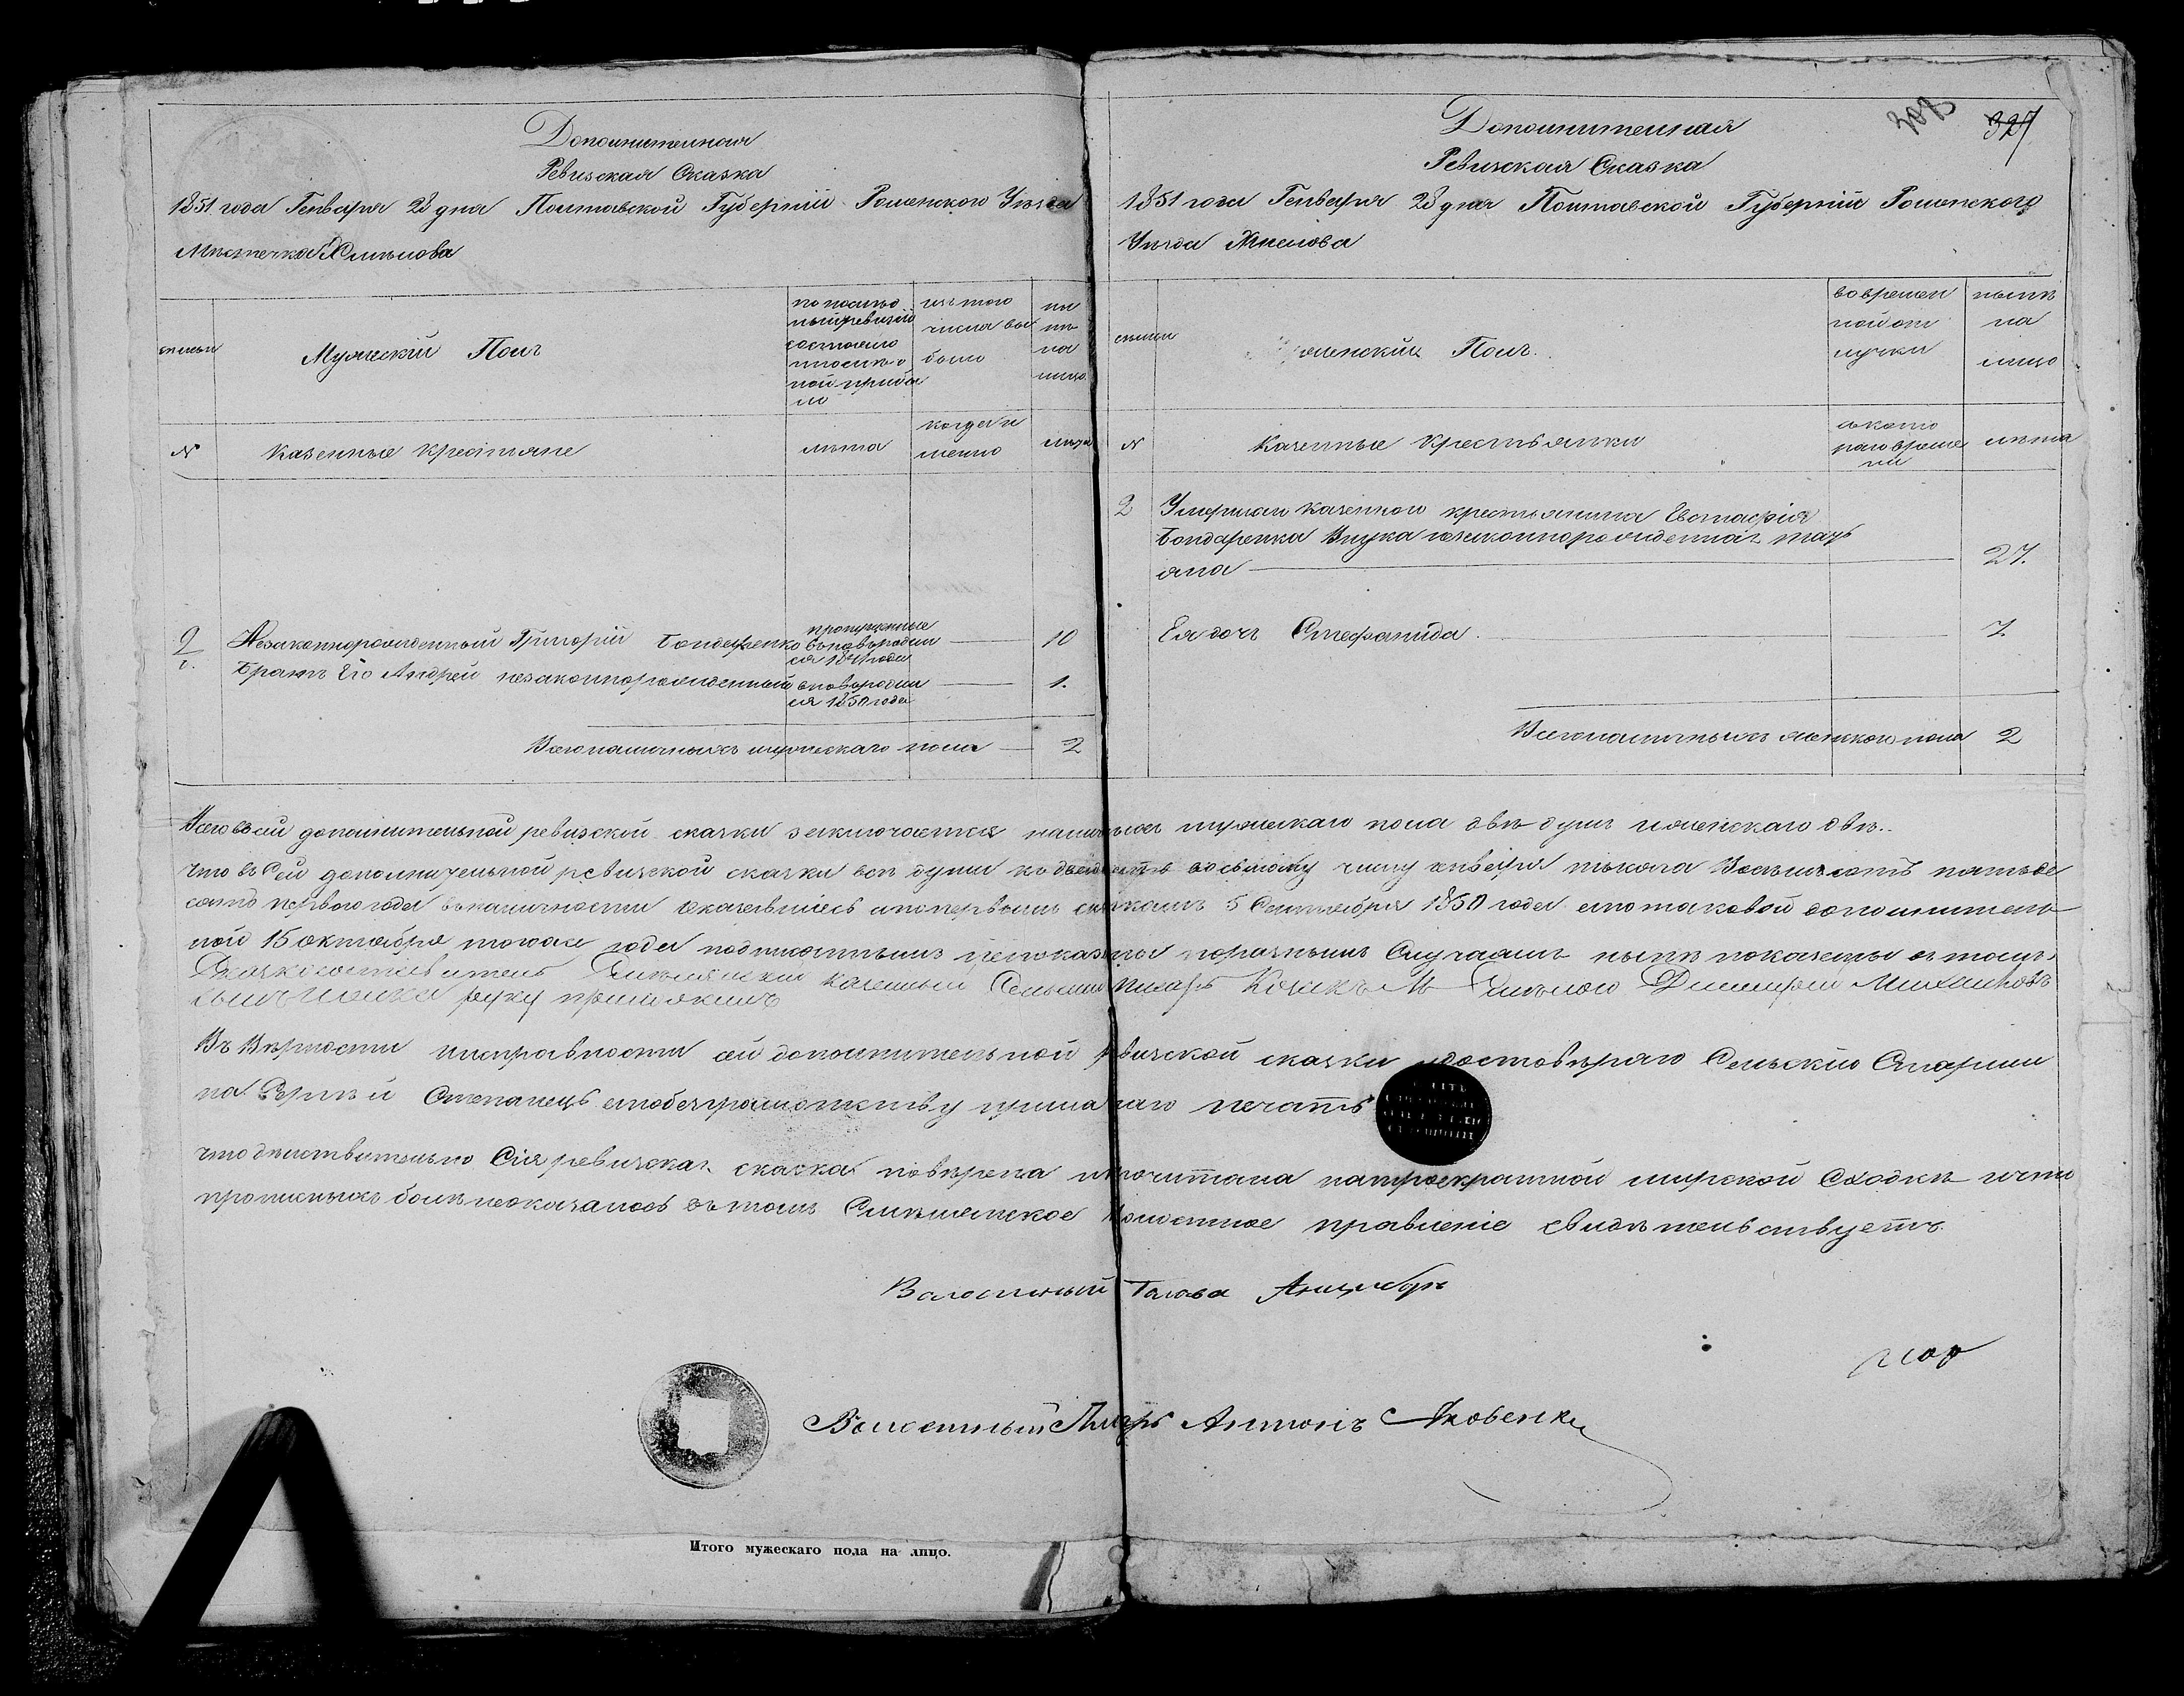 Дополнительная
Ревизская Сказка
1851 года Генваря 28 дня Полтавской Губернии Роменского Уѣзда
Мѣстечка Смѣлова
семьи
Мужескій Полъ
по послѣд
ней ревизіи
состояло
и послѣ о
ной прибы
ло
изъ того
числа вы
было
ны
нѣ
на
лицо
N
Казенные крестьяне
лѣта
когда и
менно
лѣта
2
1.
Незаконнорожденный Григорій Бондаренко
пропущенные
вновь родил
ся 1841 года
10
Братъ Его Андрей незаконнорожденный
вновь родил
ся 1850 года
1.
Всего наличныхъ мужескаго пола 2
308
327
Дополнительная
Ревизская Сказка
1851 года Генваря 28 дня Полтавской Губерніи Роменского
Уѣзда Смелова
семьи
Женскій Полъ
во времен
ной от
лучки
нынѣ
на
лицо
N
Казенные Крестьянки
съ кото
раго време
ни
лѣта
2
Умершаго казенного крестьянина Евстафія
Бондаренка Внука незаконнорожденная Тать
яна 27.
Ея дочь Стефанида 7.
Всего наличныхъ женского пола 2
Всего въ сей дополнительной ревизской сказки заключается наличныхъ мужескаго пола двѣ душы и женскаго двѣ.
что въ Сей дополнительной ревизской сказки всѣ души къ двадцать восьмому числу генваря тысяча Восемьсотъ пятьде
сятъ первого года въ наличности оказавшіесь а по первымъ сказкамъ 5 Сентября 1850 года и по таковой дополнитель
ной 15 октября тогоже года подписаннымъ непоказаны по разнымъ Случаямъ нынѣ показаны въ томъ
казенный Сельский писарь Козакъ М Смѣлого Дмитрій
руку приложилъ
Въ Вѣрности и исправности сей дополнительной ревизской сказки удостовѣряю Сельскій Старши
на Сергѣй Степанецъ а по безграмотству прилагаю печать
что дѣйствительно Сія ревизская сказка повѣрена и прочитана на троекратной мирской Сходкѣ и что
прописныхъ болѣ неоказалось въ томъ Смѣлянское Волостное правленіе свидѣтельствуетъ.
Волостный Голова Анцыборъ
Волостный Писарь Антонъ Яковенко
Итого мужескаго пола на лицо.